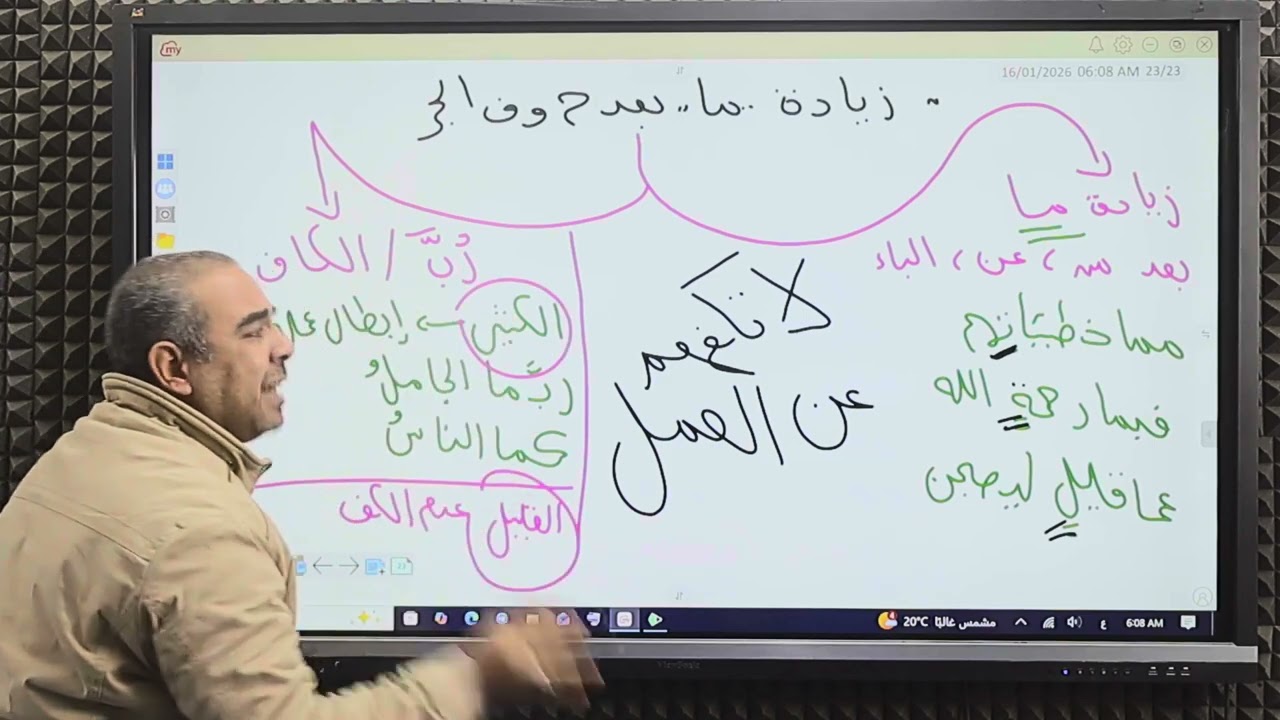 my
16/01/2026 06:08 AM 23/23
زيادة "ما" بعد حروف الجر
زيادة ما
بعد من، عن، الباء
مما خطيئاتهم
فبما رحمةٍ الله
عما قليلٍ ليصبحن
لا تكفهم
عن العمل
رُبَّ / الكاف
الكثير ← إبطال عمل
ربَّما الجاملُ
كما الناسُ
القليل عدم الكف
20°C مشمس غالبًا
ع
6:08 AM
ViewSonic